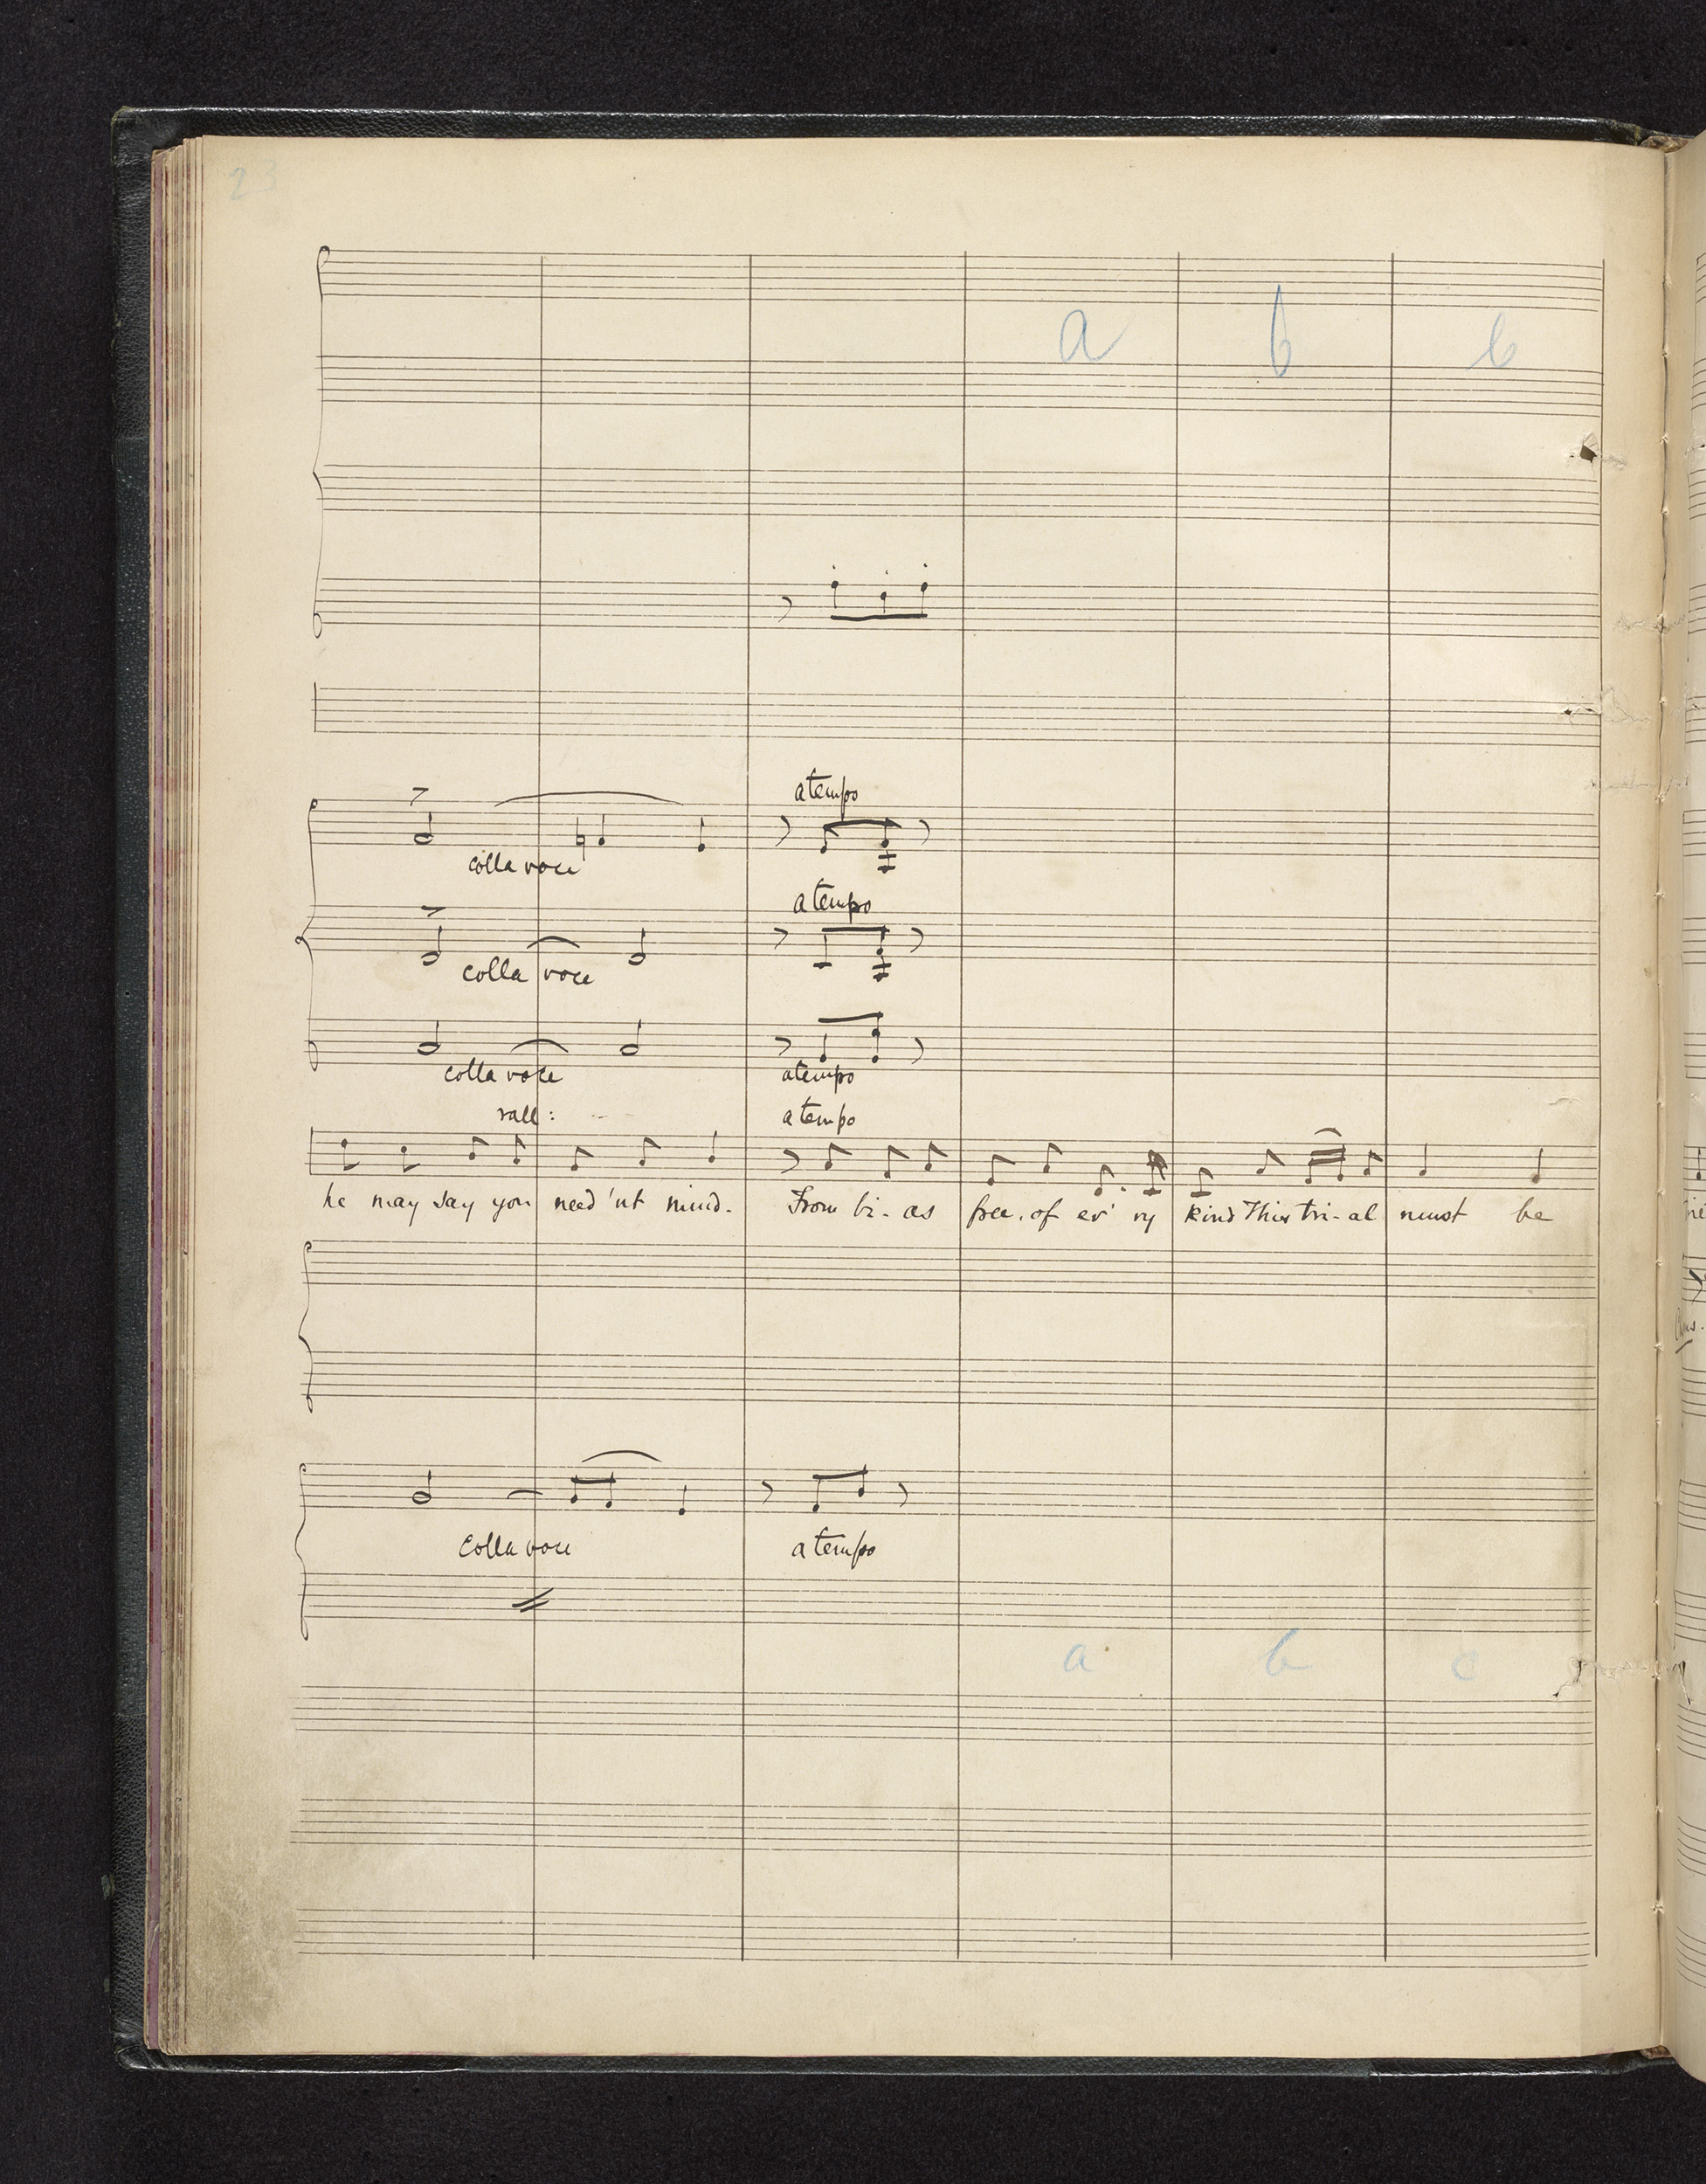 23
a b b
a tempo
colla voce
a tempo
colla voce
colla voce a tempo
rall: a tempo
he may say you need 'nt mind. From bi- as free. of ev' ry kind This tri- al must be
colla voce a tempo
a b c